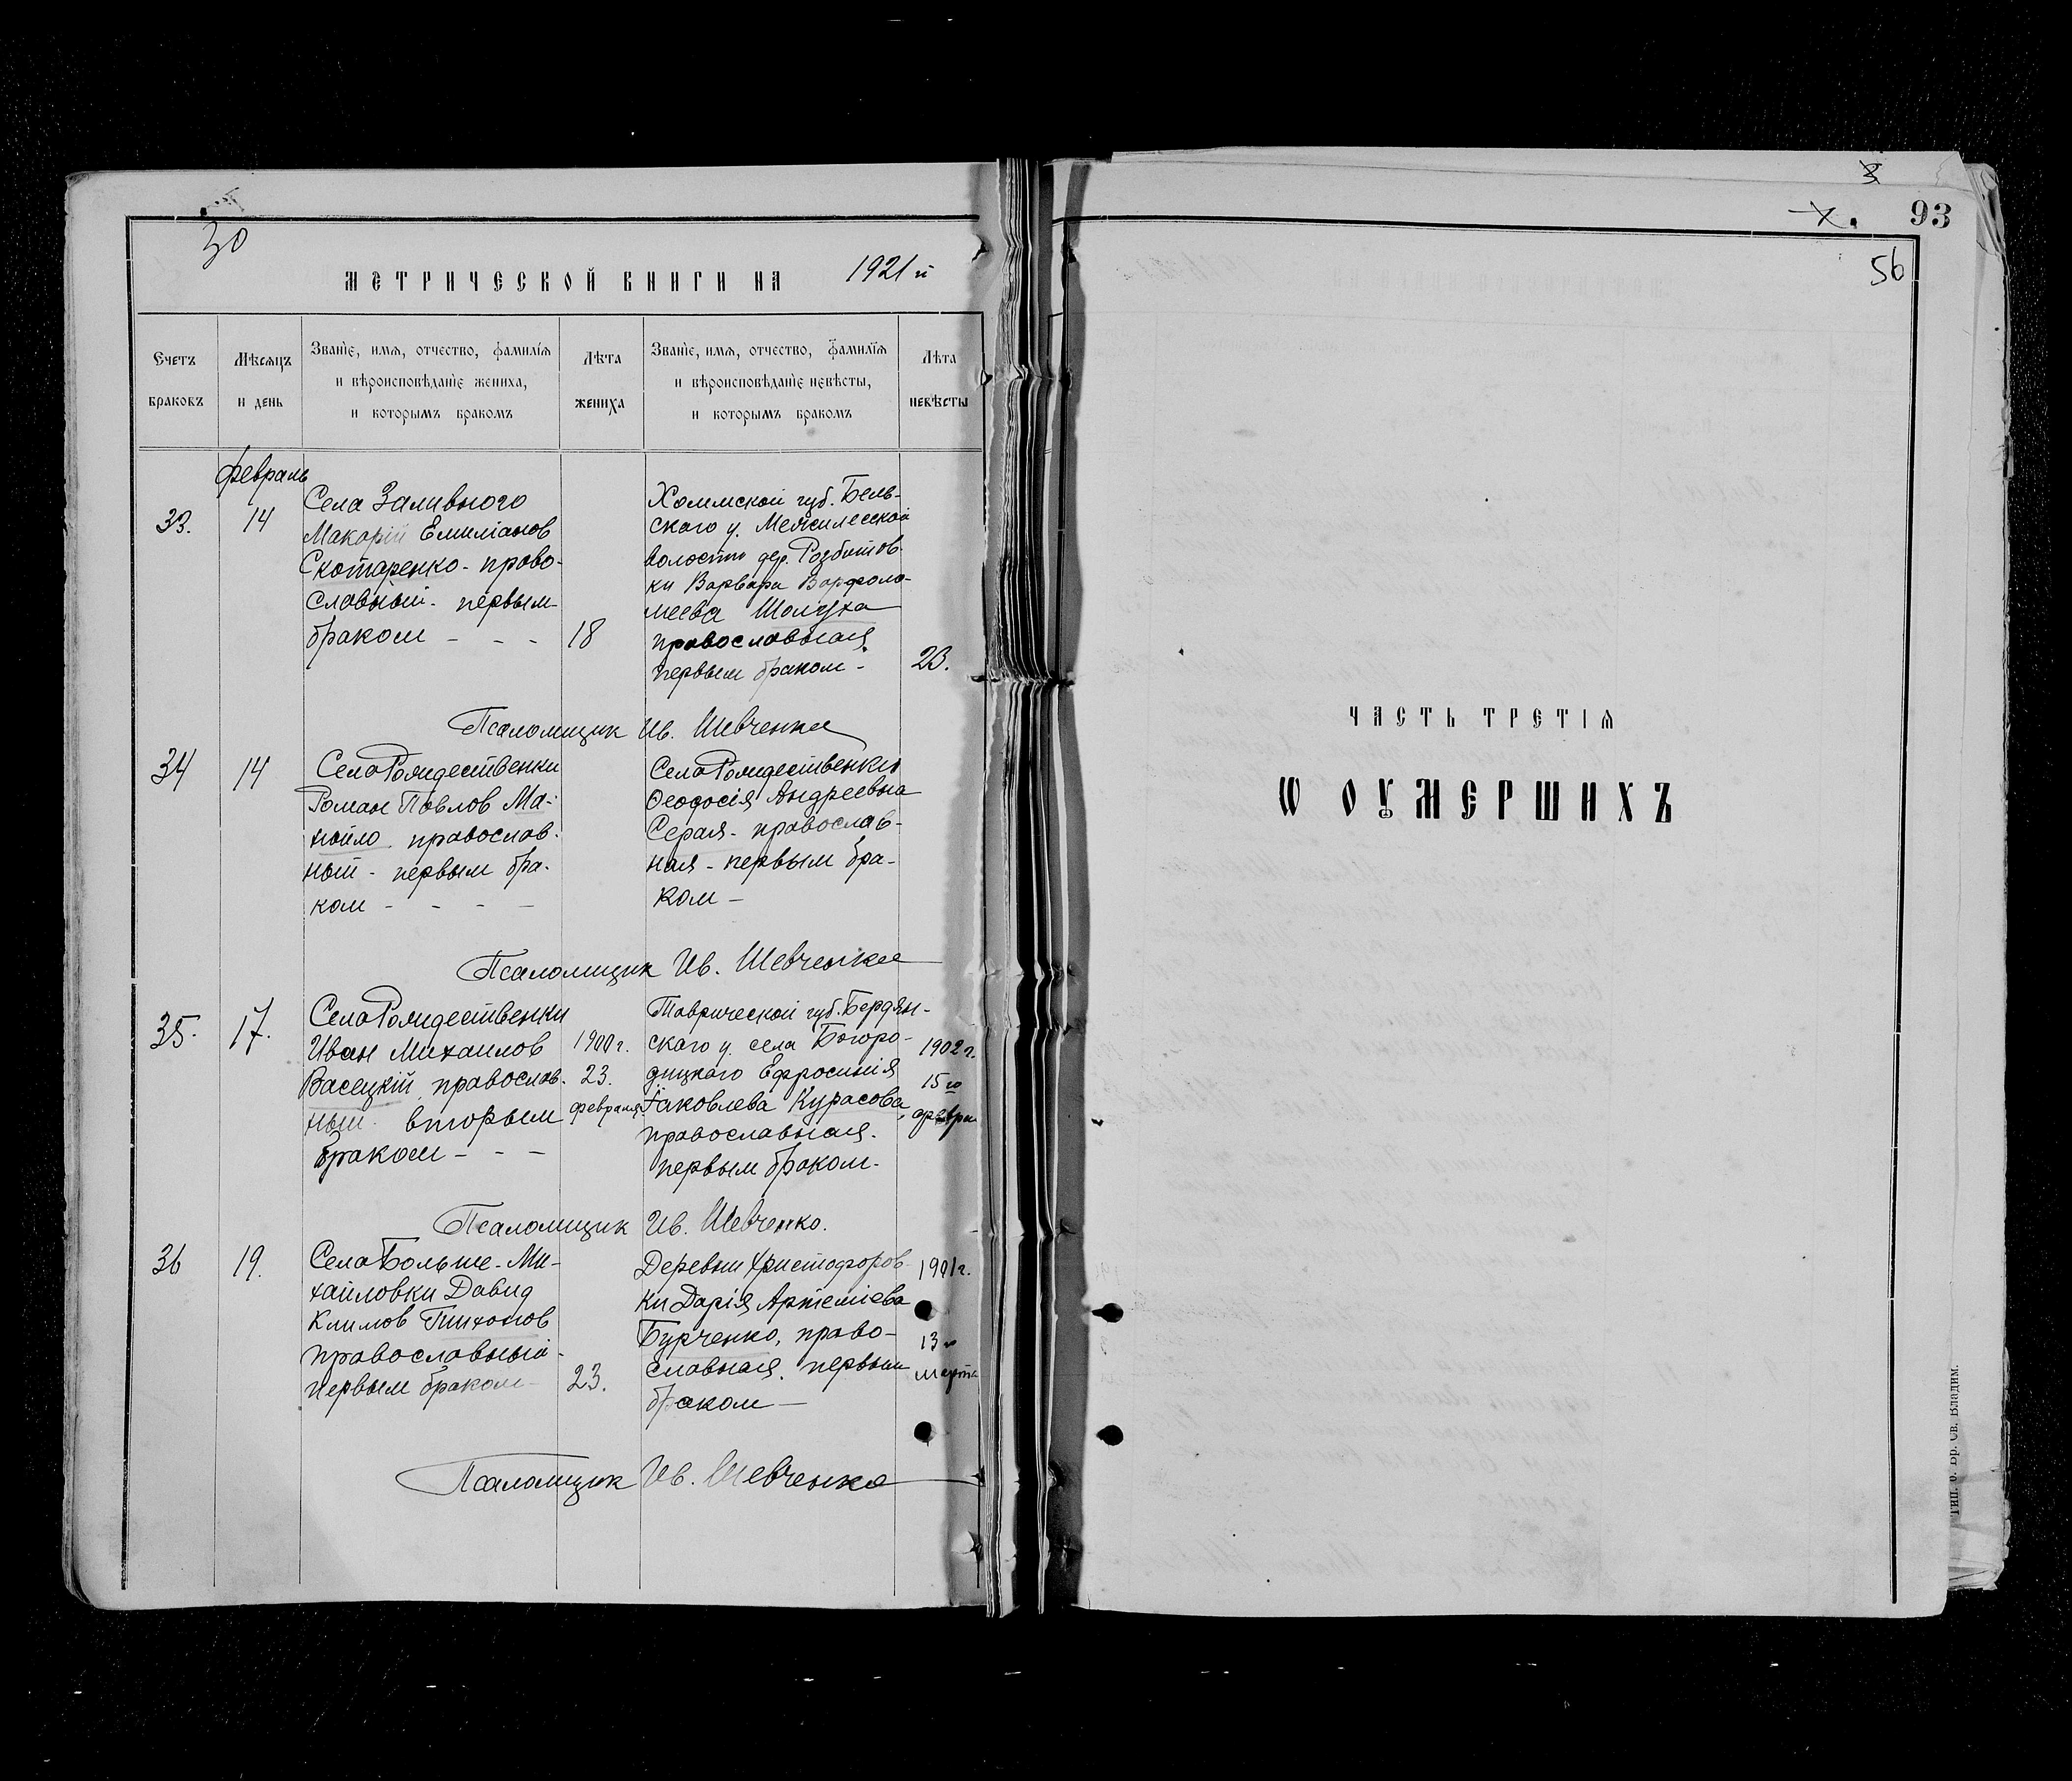 30
МЕТРИЧЕСКОЙ КНИГИ НА 1921 й
Счетъ браковъ
Мѣсяцъ и день
Званіе, имя, отчество, фамилія
и вѣроисповѣданіе жениха,
и которымъ бракомъ
Лѣта жениха
Званіе, имя, отчество, фамилія
и вѣроисповѣданіе невѣсты,
и которымъ бракомъ
Лѣта невѣсты
Февраль
33.
14
Села Заливного
Макарій Емиліанов
Скотаренко - право-
славный - первым
браком - - -
18
Холмской губ. Бель-
ского у. Межилесской
волости дер. Розбитов-
ки Варвара Варфоло-
меева Шолуха
православная
первым браком -
23.
Псаломщик Ив. Шевченко
34
14
Села Рождественки
Роман Павлов Ма-
нойло православ-
ный - первым бра-
ком - - - -
Села Рождественки
Феодосія Андреевна
Серая - православ-
ная - первым бра-
ком -
Псаломщик Ив. Шевченко
35.
17.
Села Рождественки
Иван Михаилов
Васецкій православ-
ный вторым
браком - - -
1900 г.
23.
февраля
Таврической губ. Бердян-
ского у. села Богоро-
дицкаго Ефросинія
Іаковлева Курасова,
православная.
первым браком.
1902 г.
15 го
февра
Псаломщик Ив. Шевченко.
36
19.
Села Больше-Ми-
хайловки Давид
Климов Тихонов
православный -
первым браком -
23.
Деревни Христофоров-
ки Дарія Артеміева
Бурченко, право-
славная. первым
браком -
1901 г.
13 го
марта
Псаломщик Ив. Шевченко
93
56
ЧАСТЬ ТРЕТІЯ
Ѡ ОУМЕРШИХЪ
Тип. б. Бр. Св. Владим.